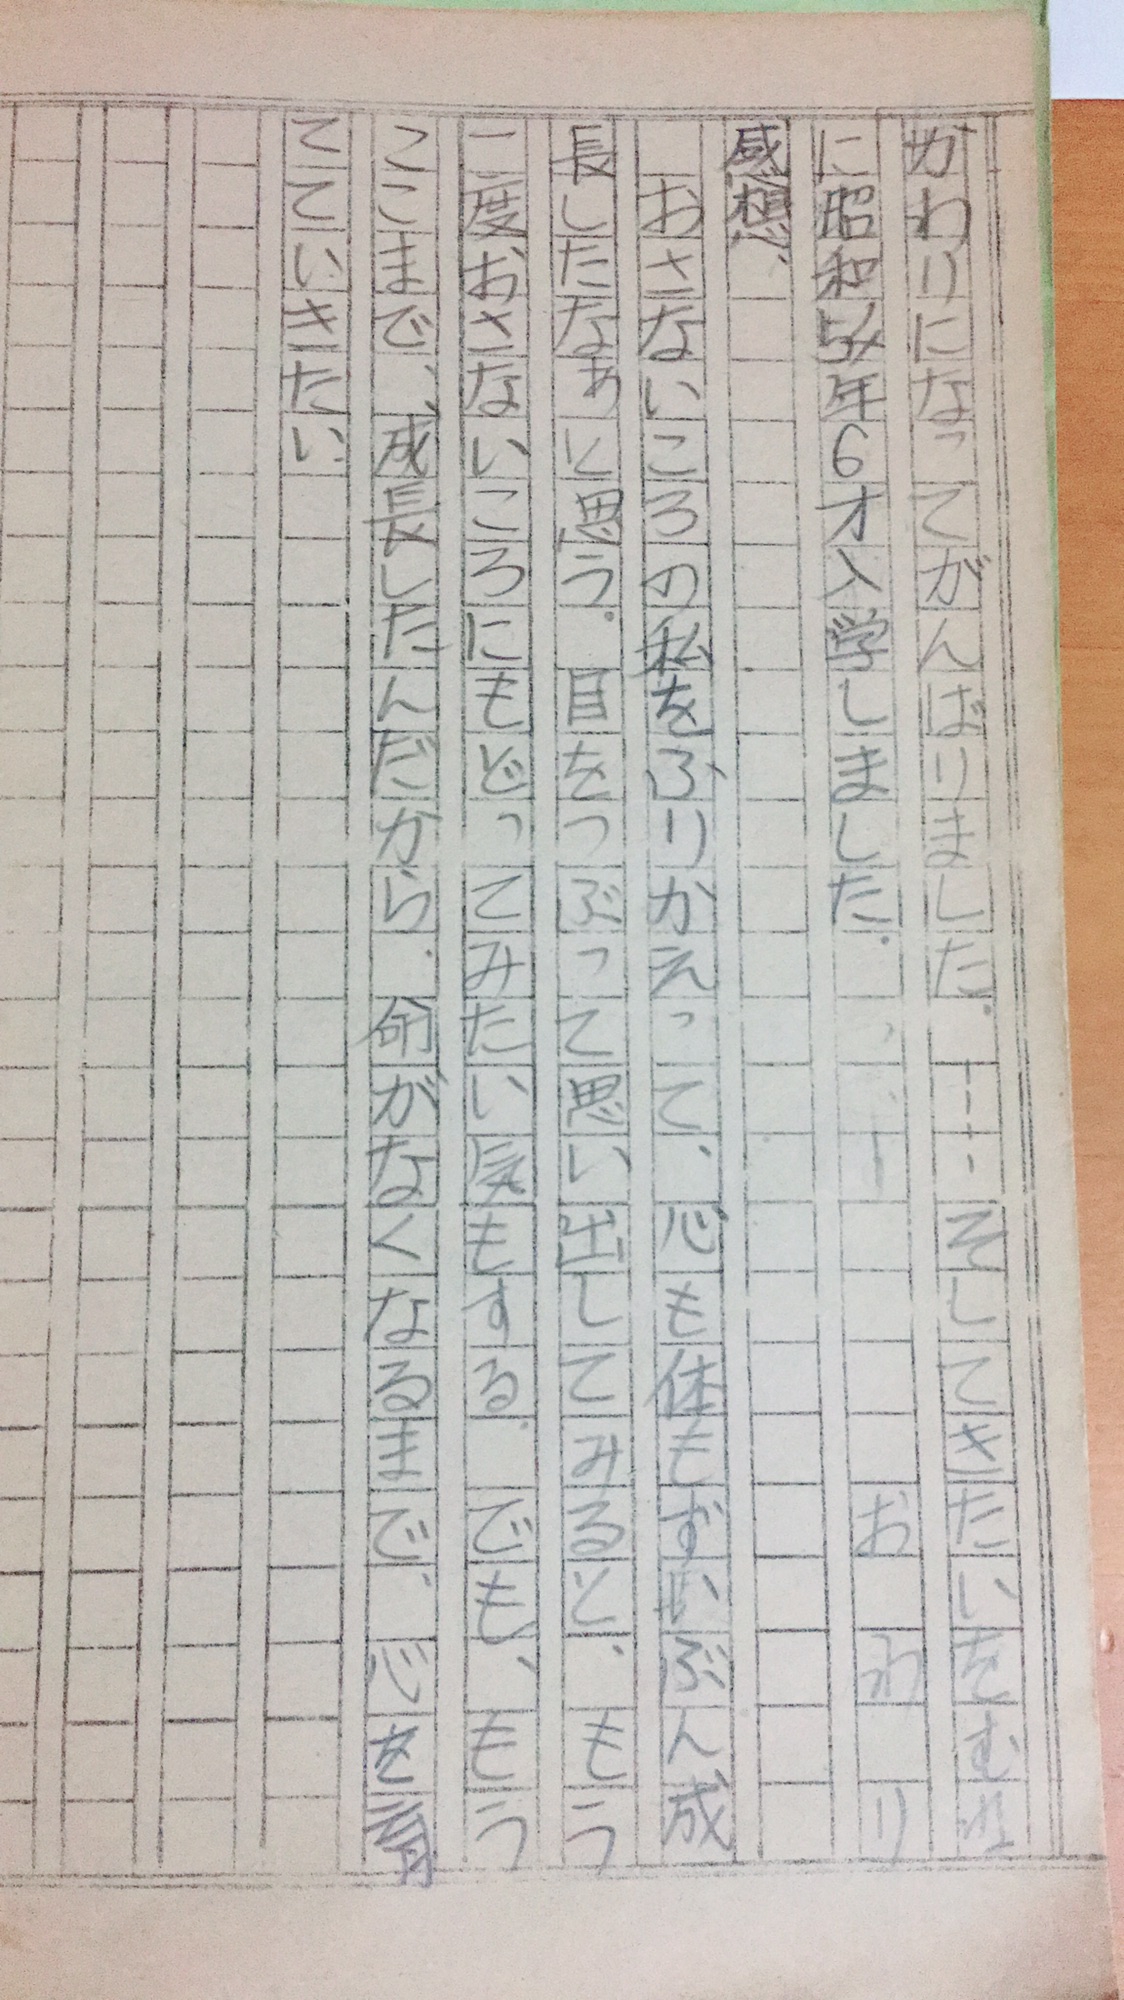 がわりになってがんばりました。----そしてきたいをむね
に昭和54年6才入学しました。 おわり
感想、
おさないころの私をふりかえって、心も体もずいぶん成
長したなぁと思う。目をつぶって思い出してみると、もう
一度おさないころにもどってみたい気もする。でも、もう
ここまで、成長したんだから、命がなくなるまで、心を育
てていきたい